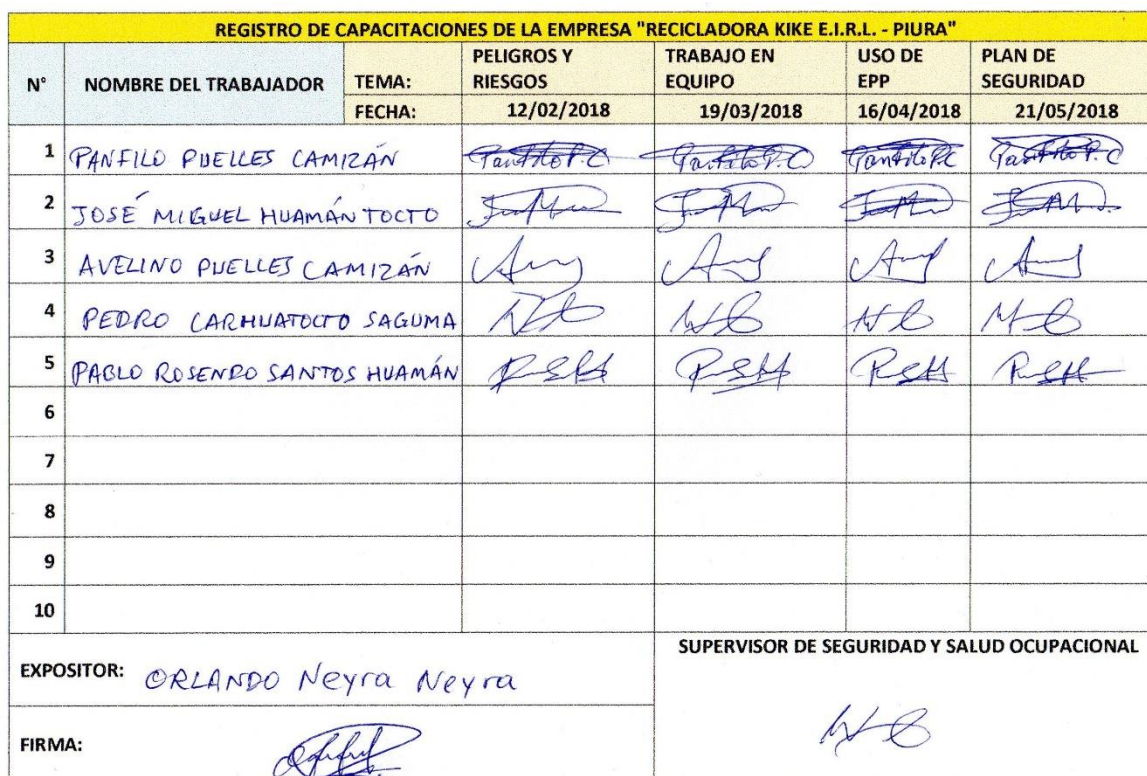 REGISTRO DE CAPACITACIONES DE LA EMPRESA "RECICLADORA KIKE E.I.R.L. - PIURA"
N° NOMBRE DEL TRABAJADOR TEMA: PELIGROS Y RIESGOS TRABAJO EN EQUIPO USO DE EPP PLAN DE SEGURIDAD
FECHA: 12/02/2018 19/03/2018 16/04/2018 21/05/2018
1 PANFILO PUELLES CAMIZÁN
2 JOSÉ MIGUEL HUAMÁN TOCTO
3 AVELINO PUELLES CAMIZÁN
4 PEDRO CARHUATOCTO SAGUMA
5 PABLO ROSENDO SANTOS HUAMÁN
6
7
8
9
10
EXPOSITOR: ORLANDO Neyra Neyra
SUPERVISOR DE SEGURIDAD Y SALUD OCUPACIONAL
FIRMA: